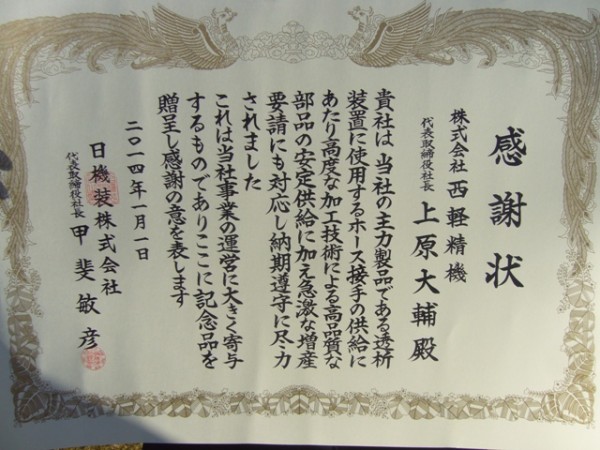 感謝状
株式会社西軽精機
代表取締役社長 上原大輔殿
貴社は、当社の主力製品である透析
装置に使用するホース接手の供給に
あたり高度な加工技術による高品質な
部品の安定供給に加え急激な増産
要請にも対応し納期遵守に尽力
されました
これは当社事業の運営に大きく寄与
するものでありここに記念品を
贈呈し感謝の意を表します
二〇一四年一月一日
日機装株式会社
代表取締役社長 甲斐敏彦